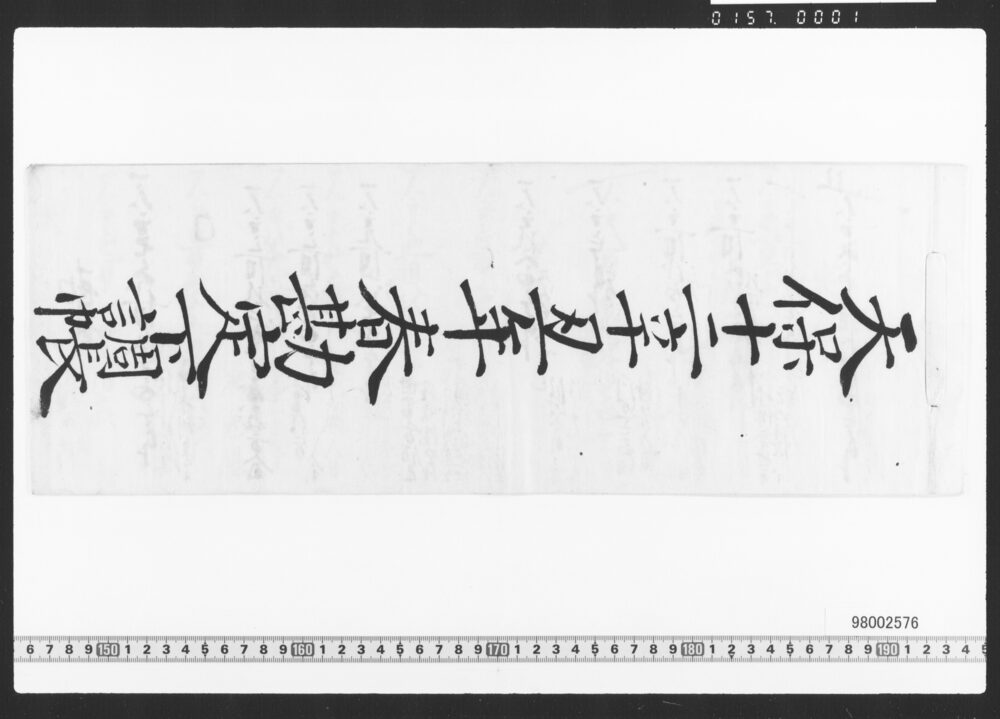 0157. 0001
天保十二辛丑年春勘定下調帳
98002576
6 7 8 9 150 1 2 3 4 5 6 7 8 9 160 1 2 3 4 5 6 7 8 9 170 1 2 3 4 5 6 7 8 9 180 1 2 3 4 5 6 7 8 9 190 1 2 3 4